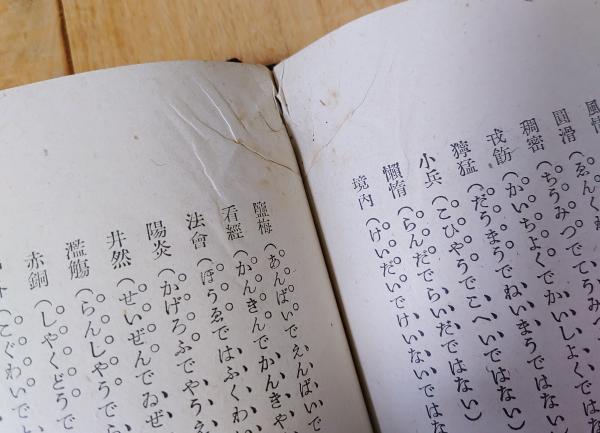 風情
圓滑(ゑんくわ
稠密(ちうみつでてうみ
戒飭(かいちよくでかいしよくではな
獰猛(だうまうでねいまうではない)
小兵(こひやうでこへいではない)
懶惰(らんだでらいだではない)
境內(けいだいでけいないではな
鹽梅(あんばいでえんばいで
看經(かんきんでかんきや
法會(ほうゑではふくわ
陽炎(かげろふでやうえ
井然(せいぜんでゐぜ
濫觴(らんしやうでら
赤銅(しやくどうで
(こぐわいで